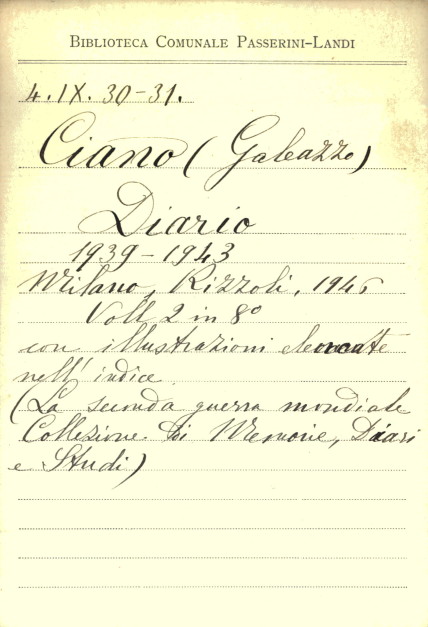 BIBLIOTECA COMUNALE PASSERINI-LANDI
4. IX. 30-31.
Ciano (Galeazzo)
Diario
1939-1943
Milano, Rizzoli, 1946
Voll. 2 in 8º
con illustrazioni elencate
nell'indice.
(La seconda guerra mondiale
Collezione di Memorie, Diari
e Studi)